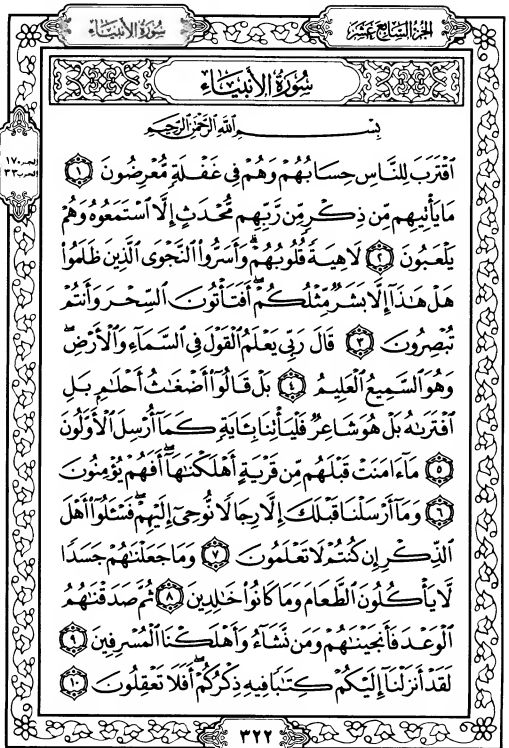 الجزء السابع عشر
سورة الأنبياء
سُورَةُ الأَنبِيَاءِ
بِسْمِ اللَّهِ الرَّحْمَٰنِ الرَّحِيمِ
الجزء ١٧
الحزب ٣٣
ٱقْتَرَبَ لِلنَّاسِ حِسَابُهُمْ وَهُمْ فِى غَفْلَةٍ مُّعْرِضُونَ ١
مَا يَأْتِيهِم مِّن ذِكْرٍ مِّن رَّبِّهِم مُّحْدَثٍ إِلَّا ٱسْتَمَعُوهُ وَهُمْ
يَلْعَبُونَ ٢ لَاهِيَةً قُلُوبُهُمْ ۗ وَأَسَرُّوا۟ ٱلنَّجْوَى ٱلَّذِينَ ظَلَمُوا۟
هَلْ هَٰذَآ إِلَّا بَشَرٌ مِّثْلُكُمْ ۖ أَفَتَأْتُونَ ٱلسِّحْرَ وَأَنتُمْ
تُبْصِرُونَ ٣ قَالَ رَبِّى يَعْلَمُ ٱلْقَوْلَ فِى ٱلسَّمَآءِ وَٱلْأَرْضِ ۖ
وَهُوَ ٱلسَّمِيعُ ٱلْعَلِيمُ ٤ بَلْ قَالُوٓا۟ أَضْغَٰثُ أَحْلَٰمٍۭ بَلِ
ٱفْتَرَىٰهُ بَلْ هُوَ شَاعِرٌ فَلْيَأْتِنَا بِـَٔايَةٍ كَمَآ أُرْسِلَ ٱلْأَوَّلُونَ
٥ مَآ ءَامَنَتْ قَبْلَهُم مِّن قَرْيَةٍ أَهْلَكْنَٰهَآ ۖ أَفَهُمْ يُؤْمِنُونَ
٦ وَمَآ أَرْسَلْنَا قَبْلَكَ إِلَّا رِجَالًا نُّوحِىٓ إِلَيْهِمْ ۖ فَسْـَٔلُوٓا۟ أَهْلَ
ٱلذِّكْرِ إِن كُنتُمْ لَا تَعْلَمُونَ ٧ وَمَا جَعَلْنَٰهُمْ جَسَدًا
لَّا يَأْكُلُونَ ٱلطَّعَامَ وَمَا كَانُوا۟ خَٰلِدِينَ ٨ ثُمَّ صَدَقْنَٰهُمُ
ٱلْوَعْدَ فَأَنجَيْنَٰهُمْ وَمَن نَّشَآءُ وَأَهْلَكْنَا ٱلْمُسْرِفِينَ ٩
لَقَدْ أَنزَلْنَآ إِلَيْكُمْ كِتَٰبًا فِيهِ ذِكْرُكُمْ ۖ أَفَلَا تَعْقِلُونَ ١٠
٣٢٢